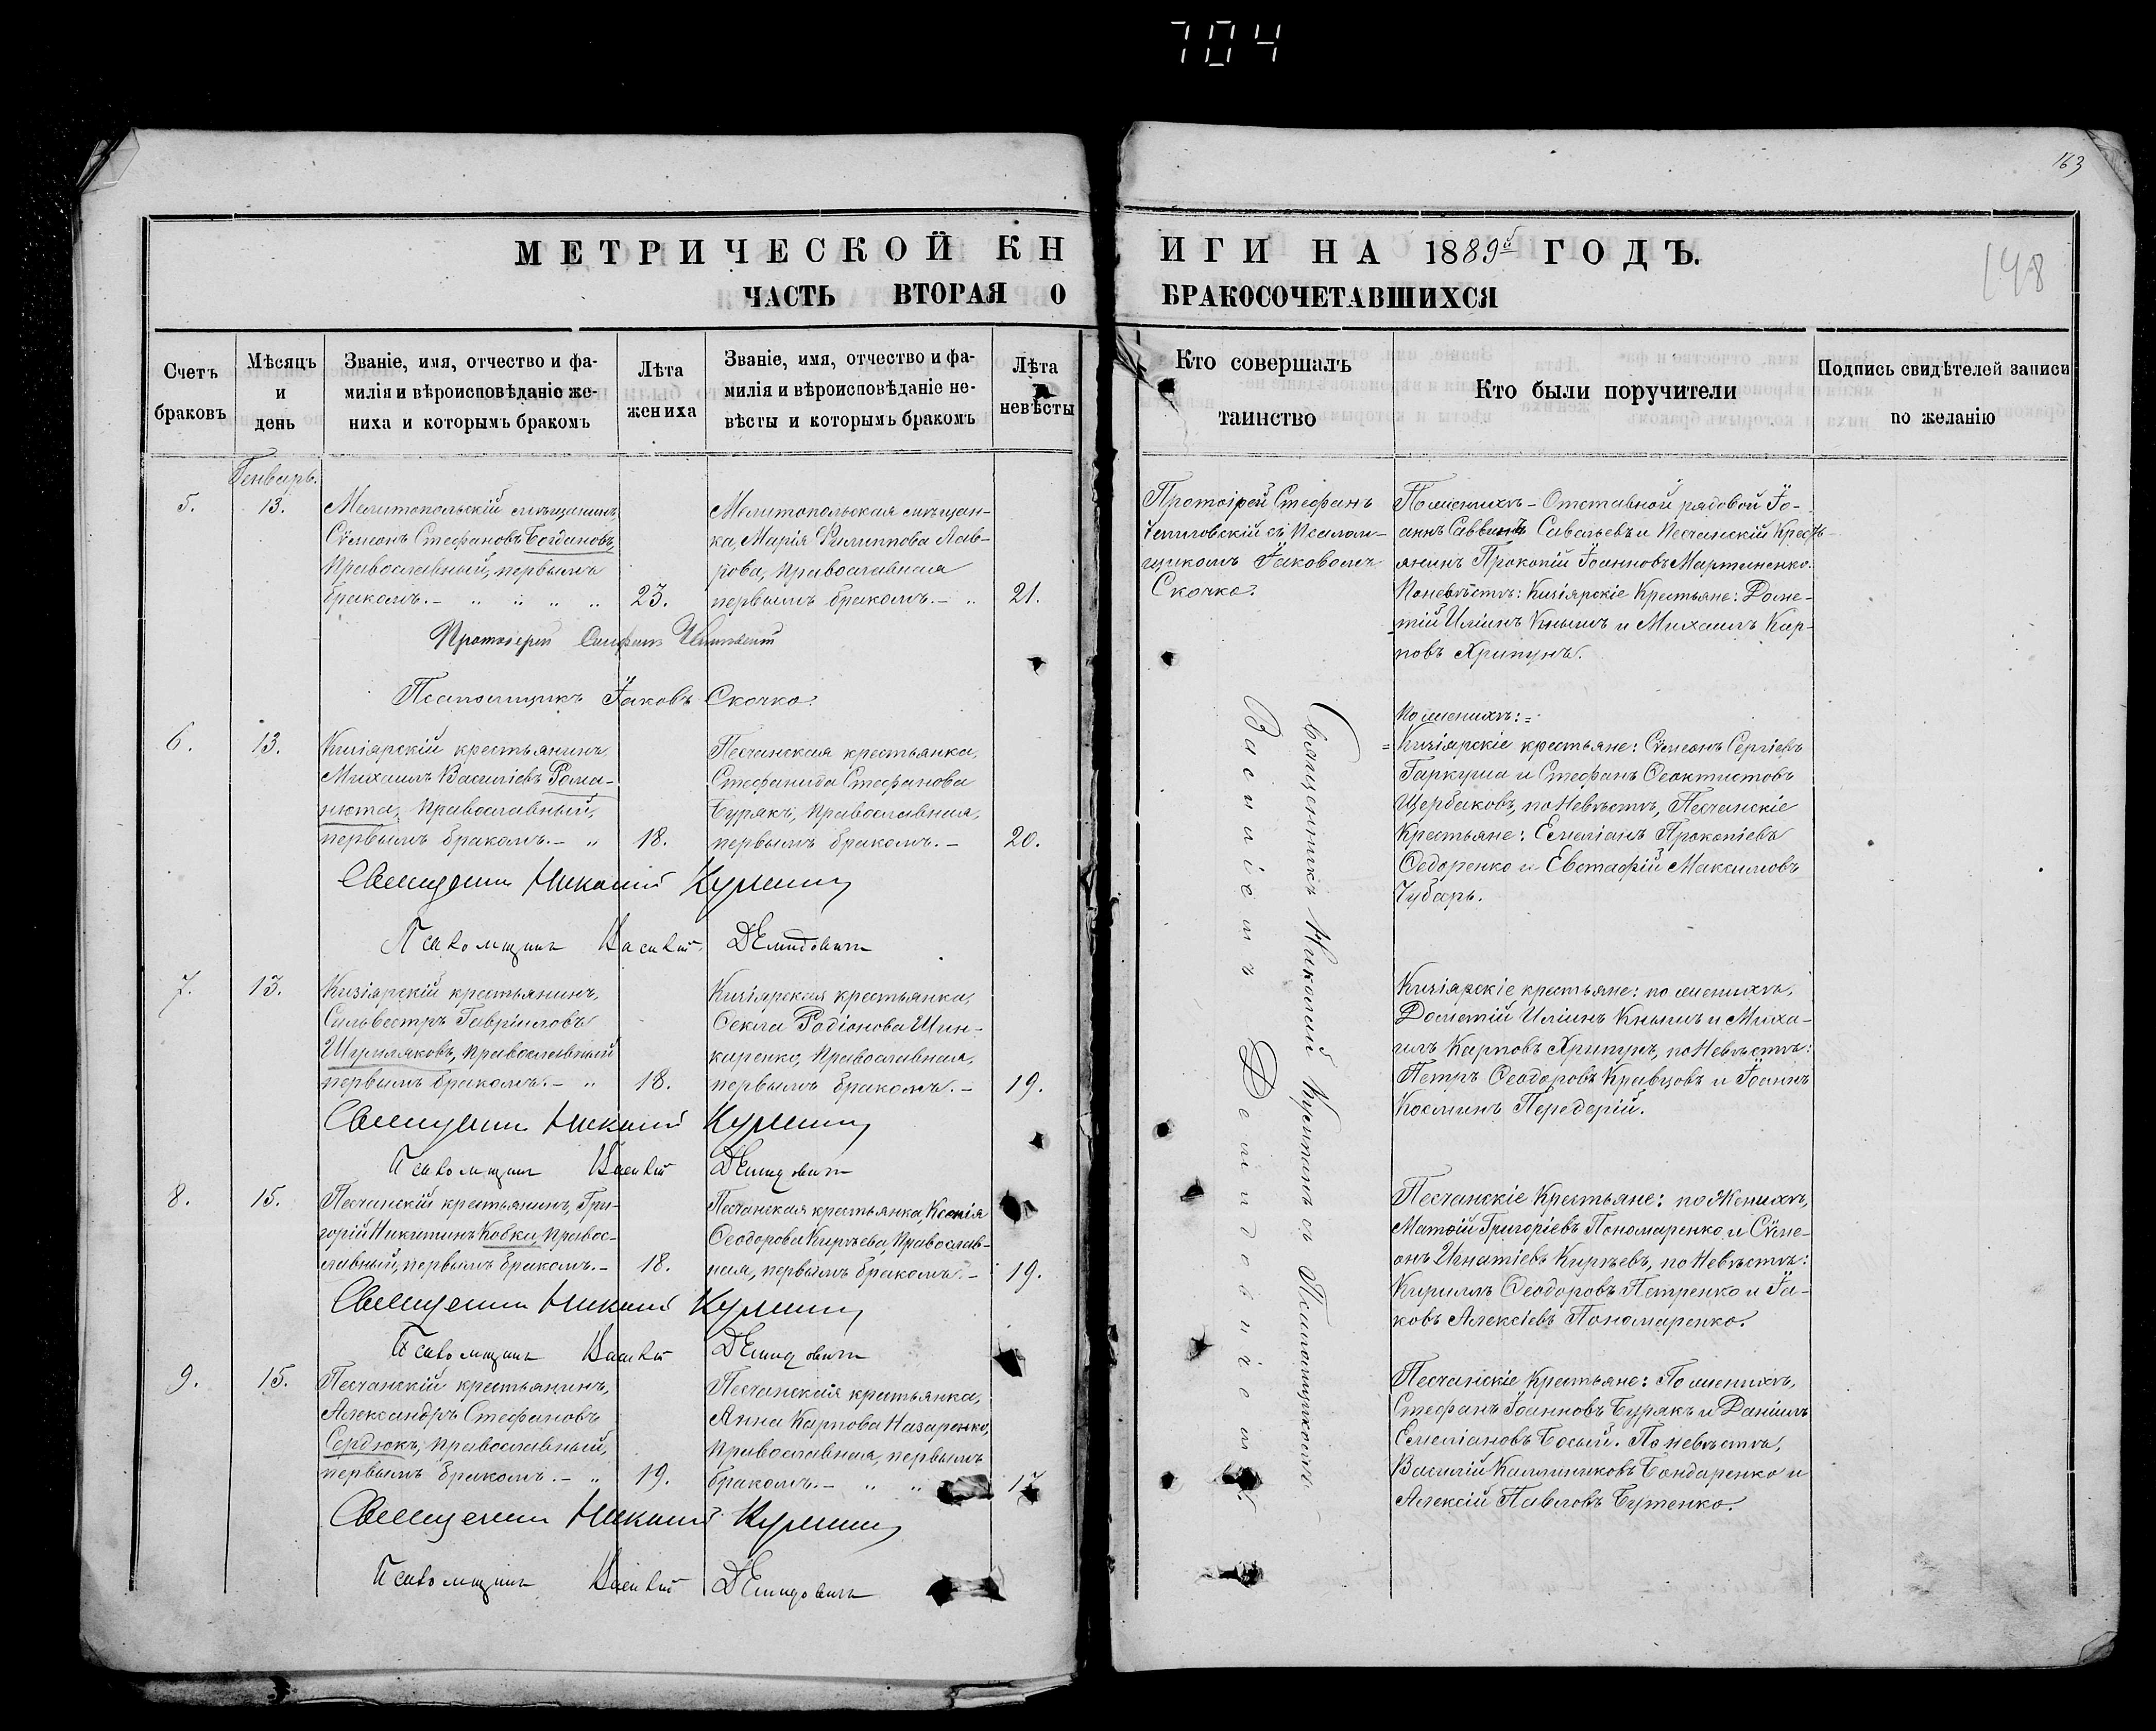 704
163
148
МЕТРИЧЕСКОЙ КНИГИ НА 1889й ГОДЪ.
ЧАСТЬ ВТОРАЯ О БРАКОСОЧЕТАВШИХСЯ
Счетъ браковъ
Мѣсяцъ и день
Званіе, имя, отчество и фа-
милія и вѣроисповѣданіе же-
ниха и которымъ бракомъ
Лѣта жениха
Званіе, имя, отчество и фа-
милія и вѣроисповѣданіе не-
вѣсты и которымъ бракомъ
Лѣта невѣсты
Кто совершалъ
таинство
Кто были поручители
Подпись свидѣтелей записи
по желанію
Генварь.
5.
13.
Мелитопольскій мѣщанинъ,
Сѵмеонъ Стефановъ Богдановъ,
Православный, первымъ
бракомъ.– „ „ „ „
23.
Мелитопольская мѣщан-
ка, Марія Филиппова Лав-
рова, Православная
первымъ бракомъ.– „
21.
Протоіерей Стефанъ
съ Псалом-
щикомъ Іаковомъ
Скочко.
По женихѣ – Отставной рядовой Іо-
аннъ Саввинъ Савельевъ и Песчанскій Кресть-
янинъ Прокопій Іоанновъ Мартыненко.
По невѣстѣ: Кизіярскіе Крестьяне: Доме-
тій Иліинъ Кнышъ и Михаилъ Кар-
повъ Хрипунъ.
Протоіерей Стефанъ
Псаломщикъ Іаковъ Скочко.
6.
13.
Кизіярскій крестьянинъ
Михаилъ Василіевъ Рома-
нюта, Православный,
первымъ бракомъ.– „
18.
Песчанская крестьянка,
Стефанида Стефанова
Бурякъ, Православная,
первымъ бракомъ.–
20.
По женихѣ:=
=Кизіярскіе крестьяне: Сѵмеонъ Сергіевъ
Гаркуша и Стефанъ Ѳеоктистовъ
Щербаковъ, по Невѣстѣ, Песчанскіе
Крестьяне: Емеліанъ Прокопіевъ
Ѳедоренко и Евстафій Максимовъ
Чубарь.
Священникъ Николай
Псаломщикъ Василій Демидовичъ
7.
13.
Кизіярскій крестьянинъ,
Сильвестръ Гавріиловъ
Шумляковъ, Православный
первымъ бракомъ.– „
18.
Кизіярская крестьянка,
Ѳекла Родіонова Шин-
каренко, Православная,
первымъ бракомъ.–
19.
Кизіярскіе крестьяне: по женихѣ,
Дометій Иліинъ Кнышъ и Миха-
илъ Карповъ Хрипунъ, по Невѣстѣ:
Петръ Ѳеодоровъ Кравцовъ и Іоаннъ
Косминъ Передерій.
Священникъ Николай
Псаломщикъ Василій Демидовичъ
8.
15.
Песчанскій крестьянинъ, Гри-
горій Никитинъ Кобка, Правос-
лавный, первымъ бракомъ.–
18.
Песчанская крестьянка, Ксенія
Ѳеодорова Кирѣева, Православ-
ная, первымъ бракомъ.–
19.
Песчанскіе Крестьяне: по Женихѣ,
Матѳій Григоріевъ Пономаренко и Сѵме-
онъ Игнатіевъ Кирѣевъ, по Невѣстѣ:
Кириллъ Ѳеодоровъ Петренко и Іа-
ковъ Алексіевъ Пономаренко.
Священникъ Николай
Псаломщикъ Василій Демидовичъ
9.
15.
Песчанскій крестьянинъ,
Александръ Стефановъ
Сердюкъ, Православный,
первымъ бракомъ.– „
19.
Песчанская крестьянка,
Анна Карпова Назаренко,
Православная, первымъ
бракомъ.– „ „
17
Песчанскіе Крестьяне: По женихѣ,
Стефанъ Іоанновъ Бурякъ и Даніилъ
Емеліановъ Босый. По невѣстѣ,
Василій Каллиниковъ Бондаренко и
Алексій Павловъ Бутенко.
Священникъ Николай
Псаломщикъ Василій Демидовичъ
Священникъ Николай съ Псаломщикомъ
Василіемъ Демидовичемъ